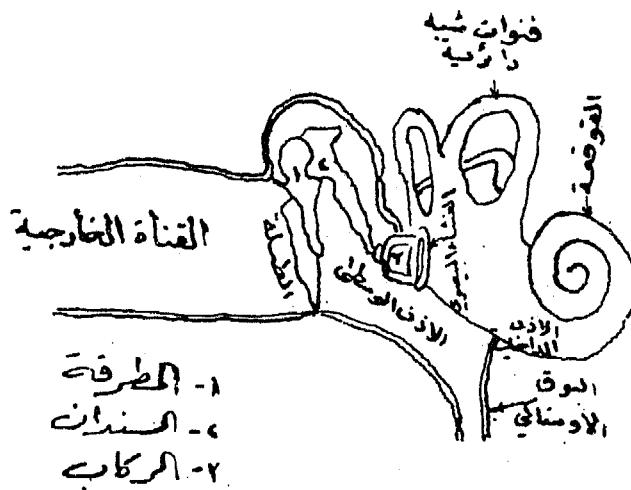 قنوات شبه
دائرية
القوقعة
القناة الخارجية
الطبلة
١
٢
٣
الأذن الوسطى
الغشاء
الاذن
الداخلية
البوق
الاوستاكي
١- المطرقة
٢- السندان
٣- الركاب